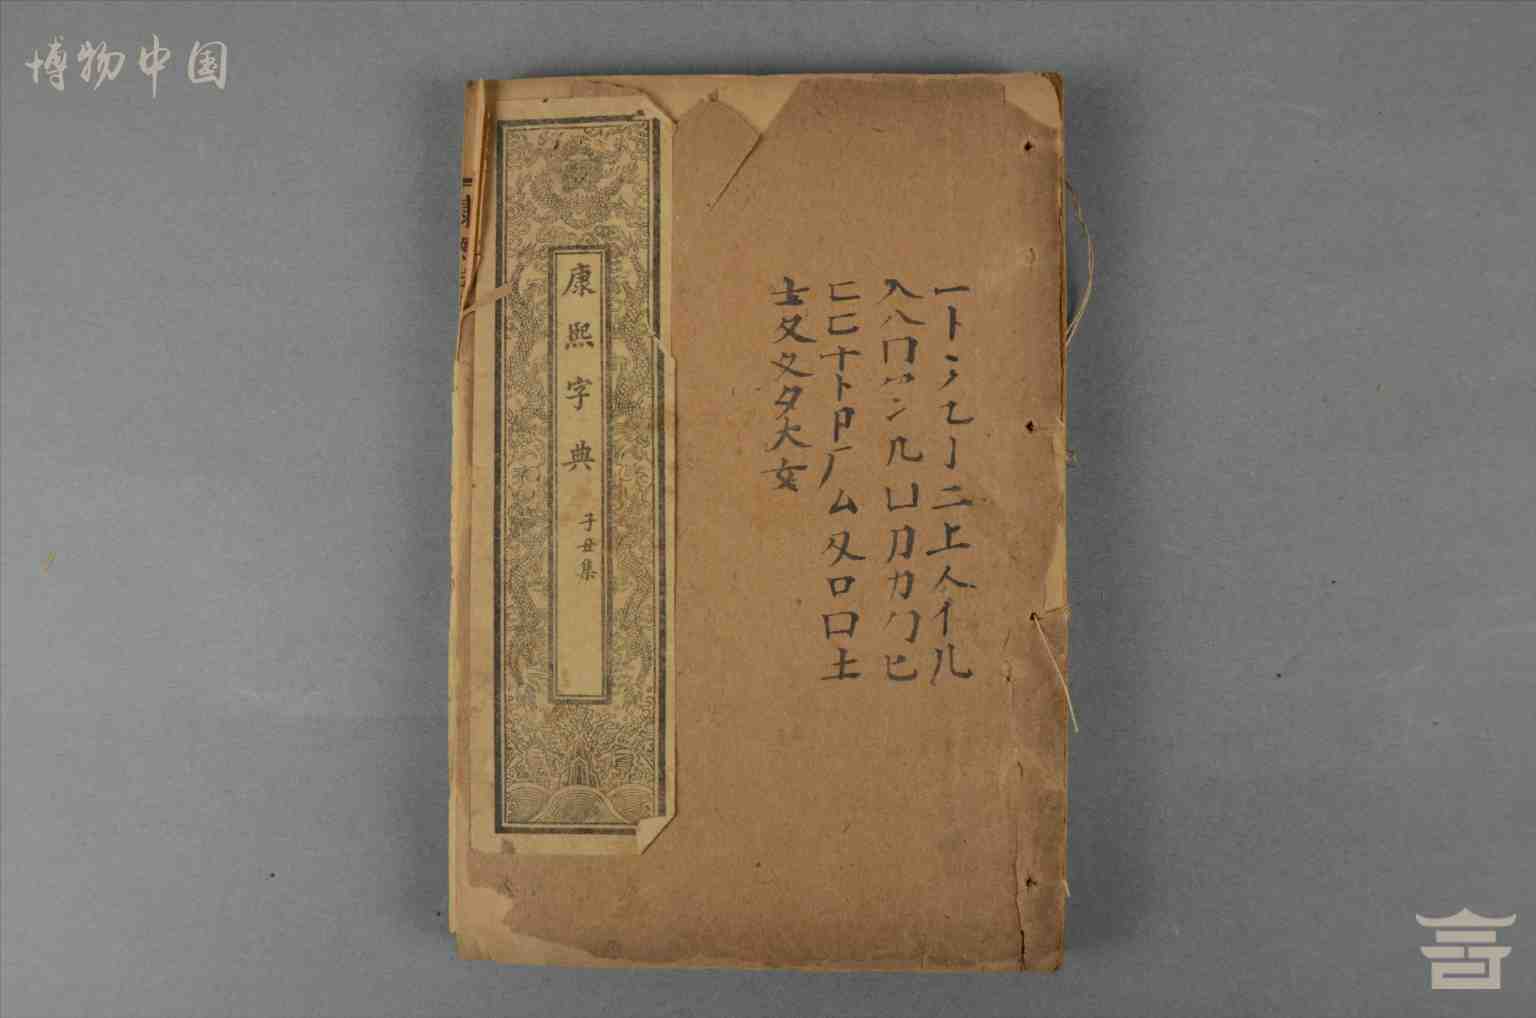 博物中国
一丨丶丿乙亅二上人亻儿
入八冂冖冫几凵刀力勹匕
匚匸十卜卩厂厶又口囗土
士夂夊夕大女
康熙字典
子丑集